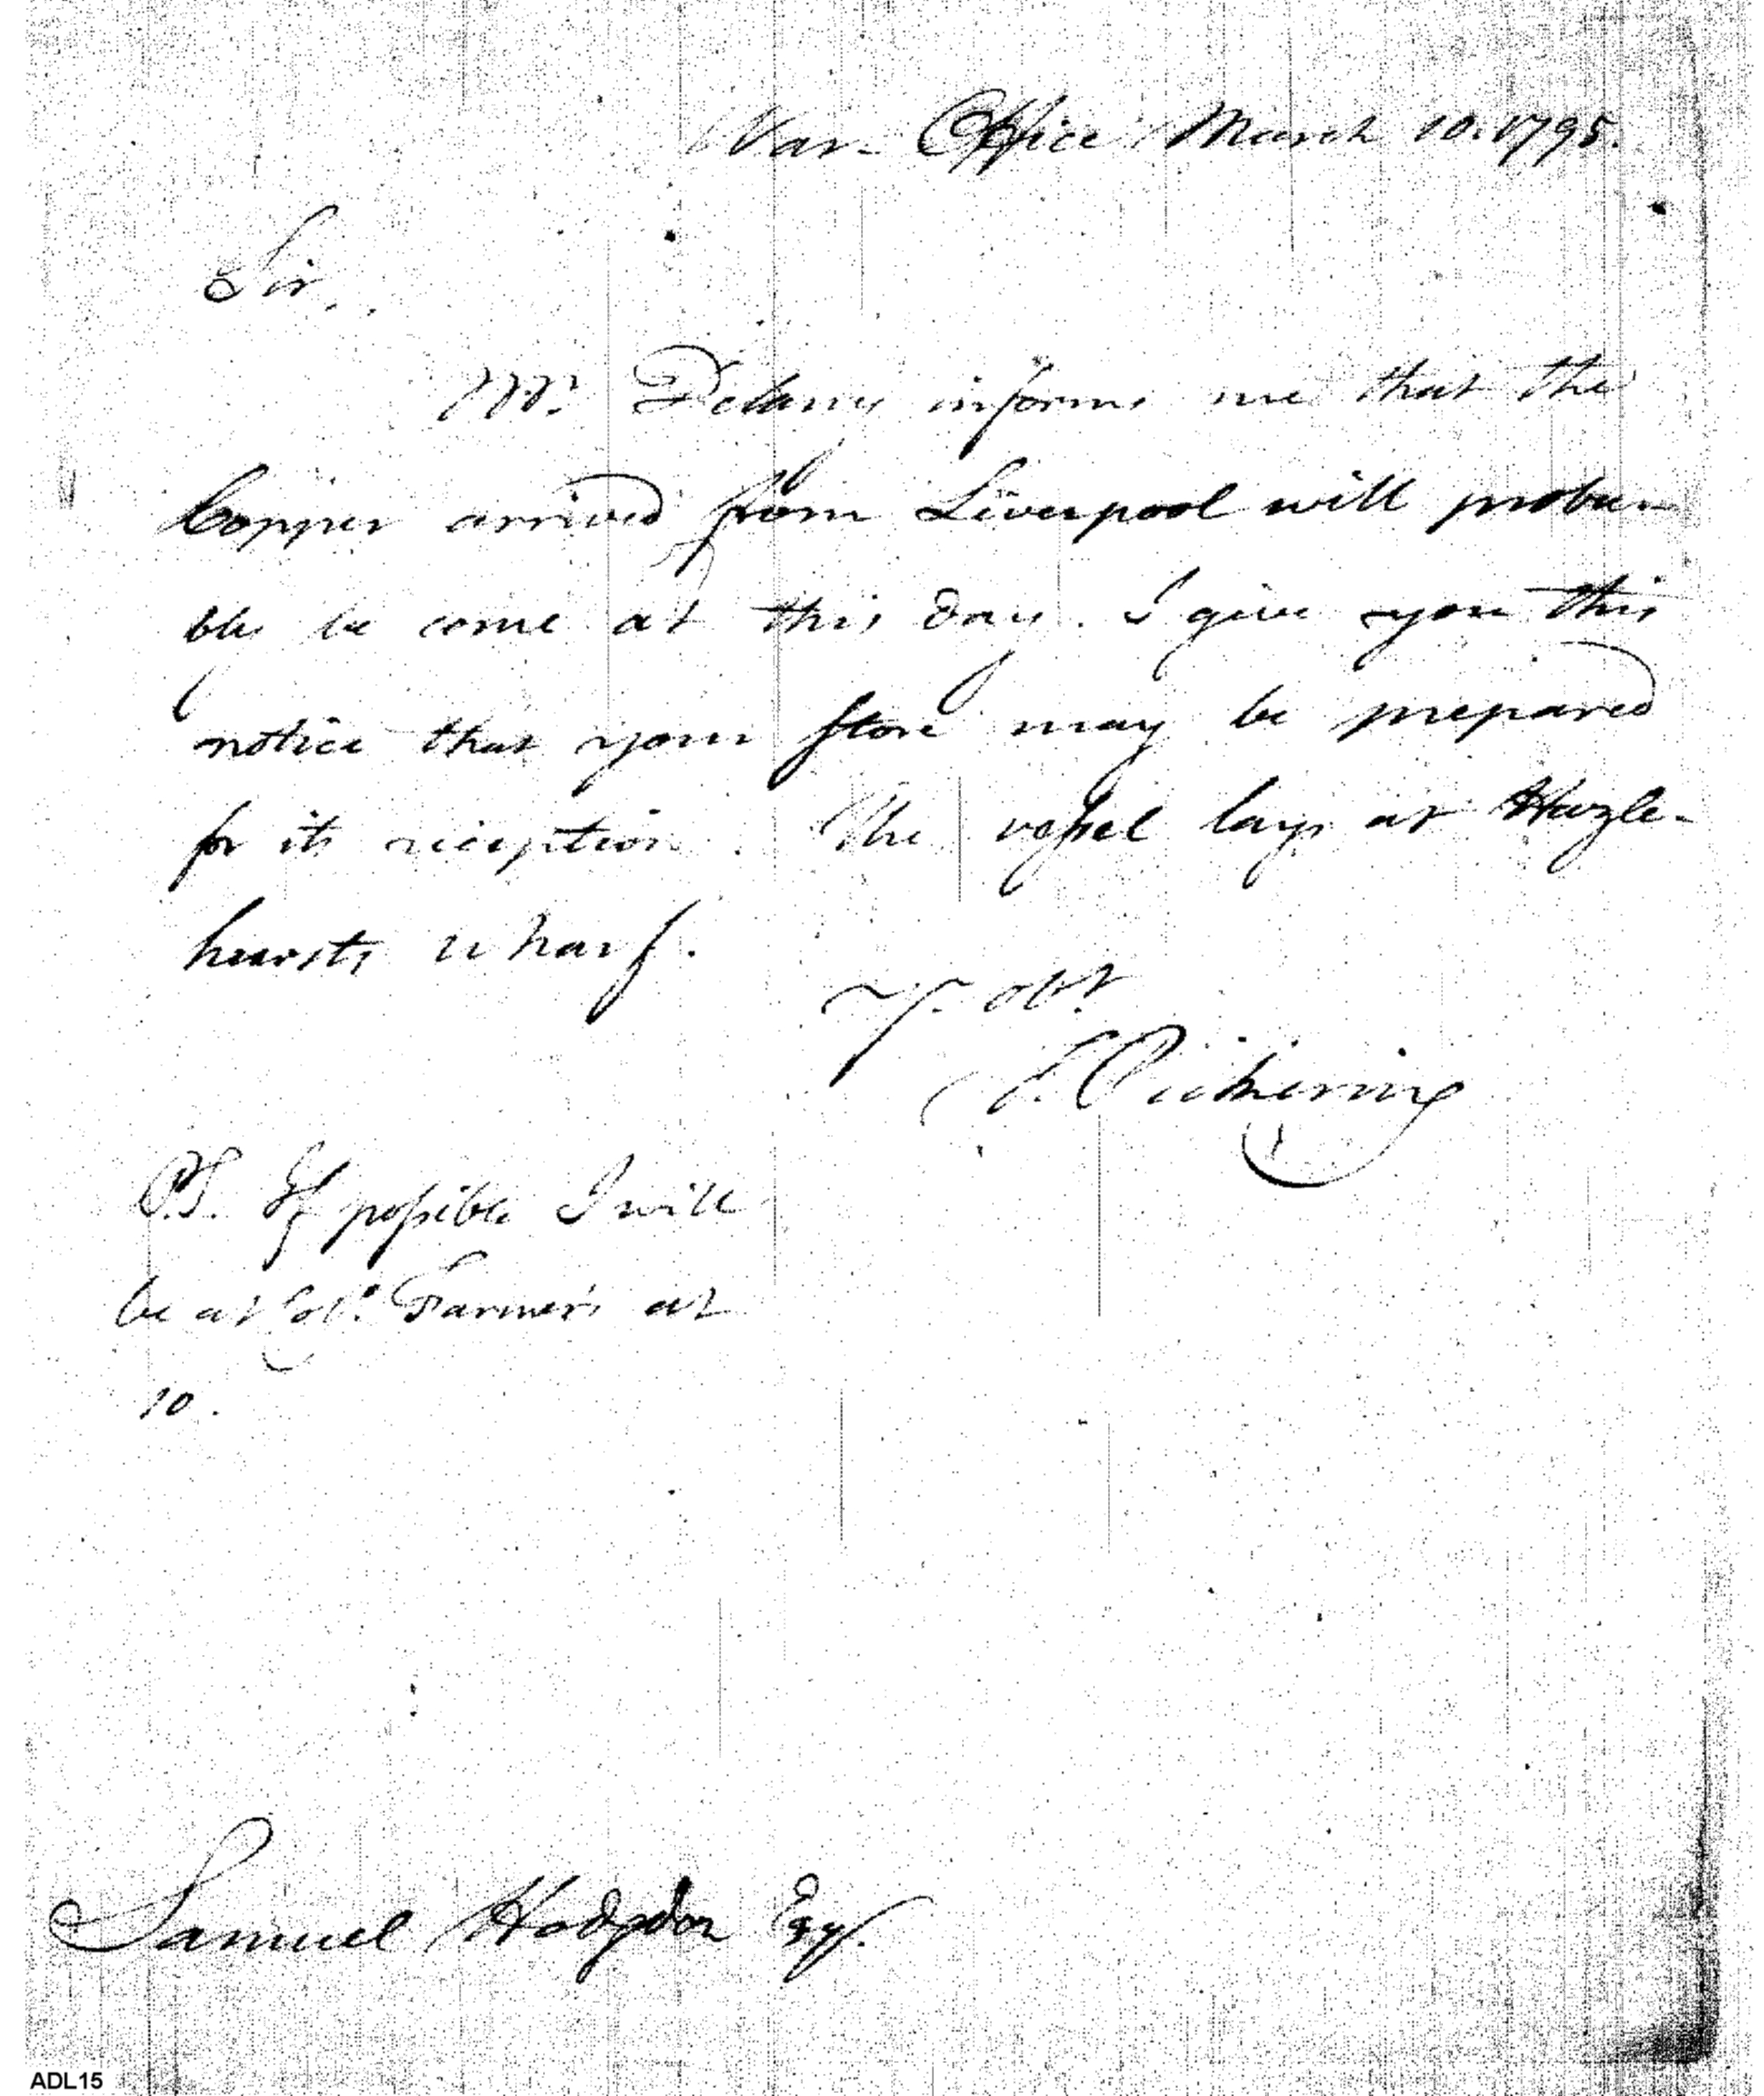 War Office March 10. 1795.
Sir,
Mr. Delany informs me that the
Copper arrived from Liverpool will proba-
bly be come at this day. I give you this
notice that your store may be prepared
for its reception. The vessel lays at Hazle-
hursts wharf.
Yr. obt.
T. Pickering
P.S. If possible I will
be at Farmer's at
10.
Samuel Hodgdon Esq.
ADL15